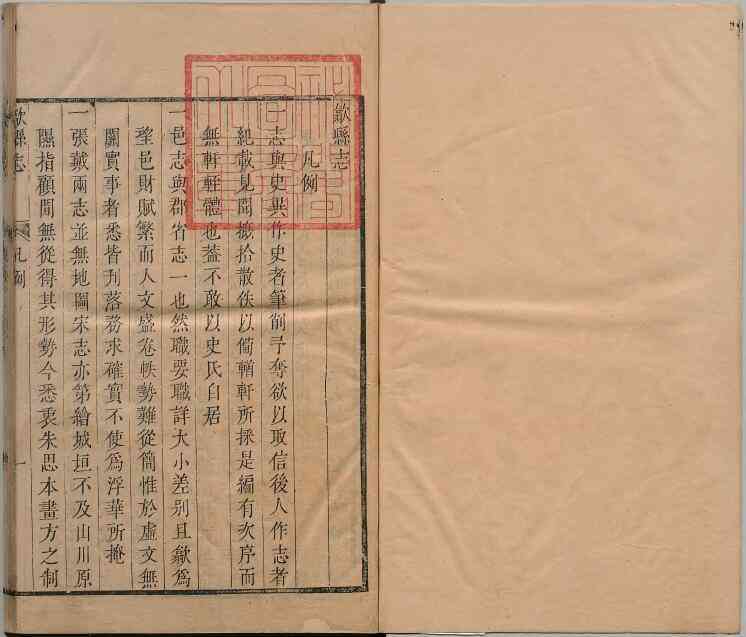 歙縣志
凡例
一志與史異作史者筆削予奪欲以取信後人作志者
紀載見聞摭拾散佚以備輶軒所採是編有次序而
無軒輊體也蓋不敢以史氏自居
一邑志與郡省志一也然職要職詳大小差別且歙爲
望邑財賦繁而人文盛卷帙勢難從簡惟於虛文無
關實事者悉皆刋落務求確實不使爲浮華所掩
一張戴兩志並無地圖宋志亦第繪城垣不及山川原
隰指顧間無從得其形勢今悉裵朱思本畫方之制
歙縣志
凡例
一